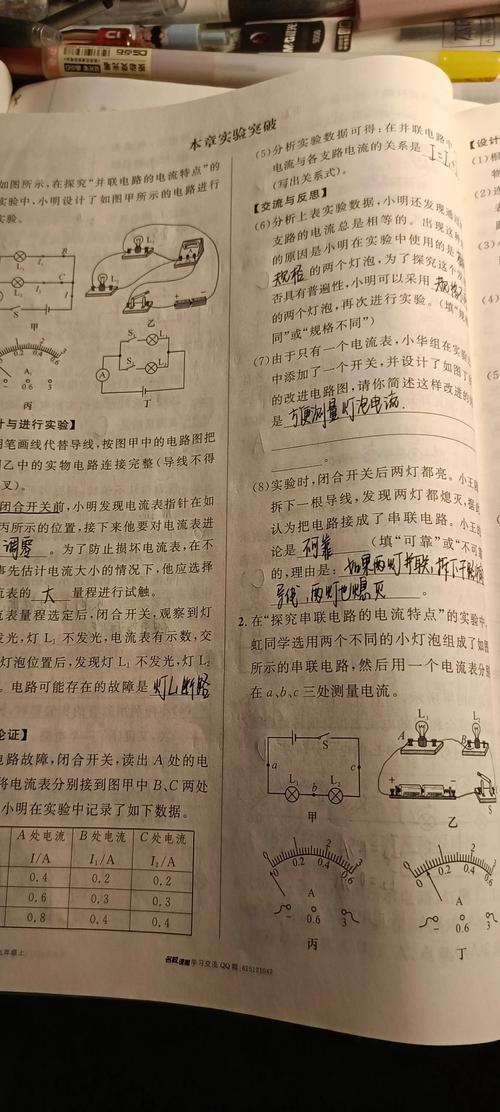 本章实验突破
如图所示,在探究“并联电路的电流特点”的
实验中,小明设计了如图甲所示的电路进行
实验。
L₁ I₁ B
L₂ I₂ C
S I
甲
L₁
L₂
乙
0 0.2 0.4 0.6
A₁
- 0.6 3
丙
S₁ L₁
S₂ L₂
A
丁
计与进行实验】
用笔画线代替导线,按图甲中的电路图把
图乙中的实物电路连接完整(导线不得
叉)。
闭合开关前,小明发现电流表指针在如
丙所示的位置,接下来他要对电流表进
调零。为了防止损坏电流表,在不
事先估计电流大小的情况下,他应选择
流表的 大 量程进行试触。
流表量程选定后,闭合开关,观察到灯
发光,灯 L₁ 不发光,电流表有示数,交
灯泡位置后,发现灯 L₁ 不发光,灯 L₂
。电路可能存在的故障是 灯L₁断路
论证】
电路故障,闭合开关,读出 A 处的电
将电流表分别接到图甲中 B、C 两处
小明在实验中记录了如下数据。
A 处电流 B 处电流 C 处电流
I/A I₁/A I₂/A
0.4 0.2 0.2
0.6 0.3 0.3
0.8 0.4 0.4
九年级上
名校课堂学习交流 QQ 群
(5)分析实验数据可得:在并联电路中,
电流与各支路电流的关系是 I=I₁+
(写出关系式)。
【交流与反思】
(6)分析上表实验数据,小明还发现通
支路的电流总是相等的。出现这种
的原因是小明在实验中使用的是
规格 的两个灯泡,为了探究这个
否具有普遍性,小明可以采用 规格
的两个灯泡,再次进行实验。(填“规
同”或“规格不同”)
(7)由于只有一个电流表,小华组在实验
中添加了一个开关,并设计了如图丁
的改进电路图,请你简述这样改进的
是 方便测量灯泡电流.
。
(8)实验时,闭合开关后两灯都亮。小王
拆下一根导线,发现两灯都熄灭,据此
认为把电路接成了串联电路。小王的
论是 不可靠 (填“可靠”或“不可靠
的,理由是: 如果两灯并联,拆下干路
导线,两灯也熄灭 。
2. 在“探究串联电路的电流特点”的实验中,
虹同学选用两个不同的小灯泡组成了如
所示的串联电路,然后用一个电流表分别
在 a、b、c 三处测量电流。
S
a c
L₁ b L₂
甲
L₁ L₂
A B
+ - S
乙
0 1 2 3
0 0.2 0.4 0.6
A
- 0.6 3
丙
0 1 2 3
0 0.2 0.4 0.6
A
- 0.6 3
丁
【设计
(1)根
(2)连
(3)
(5